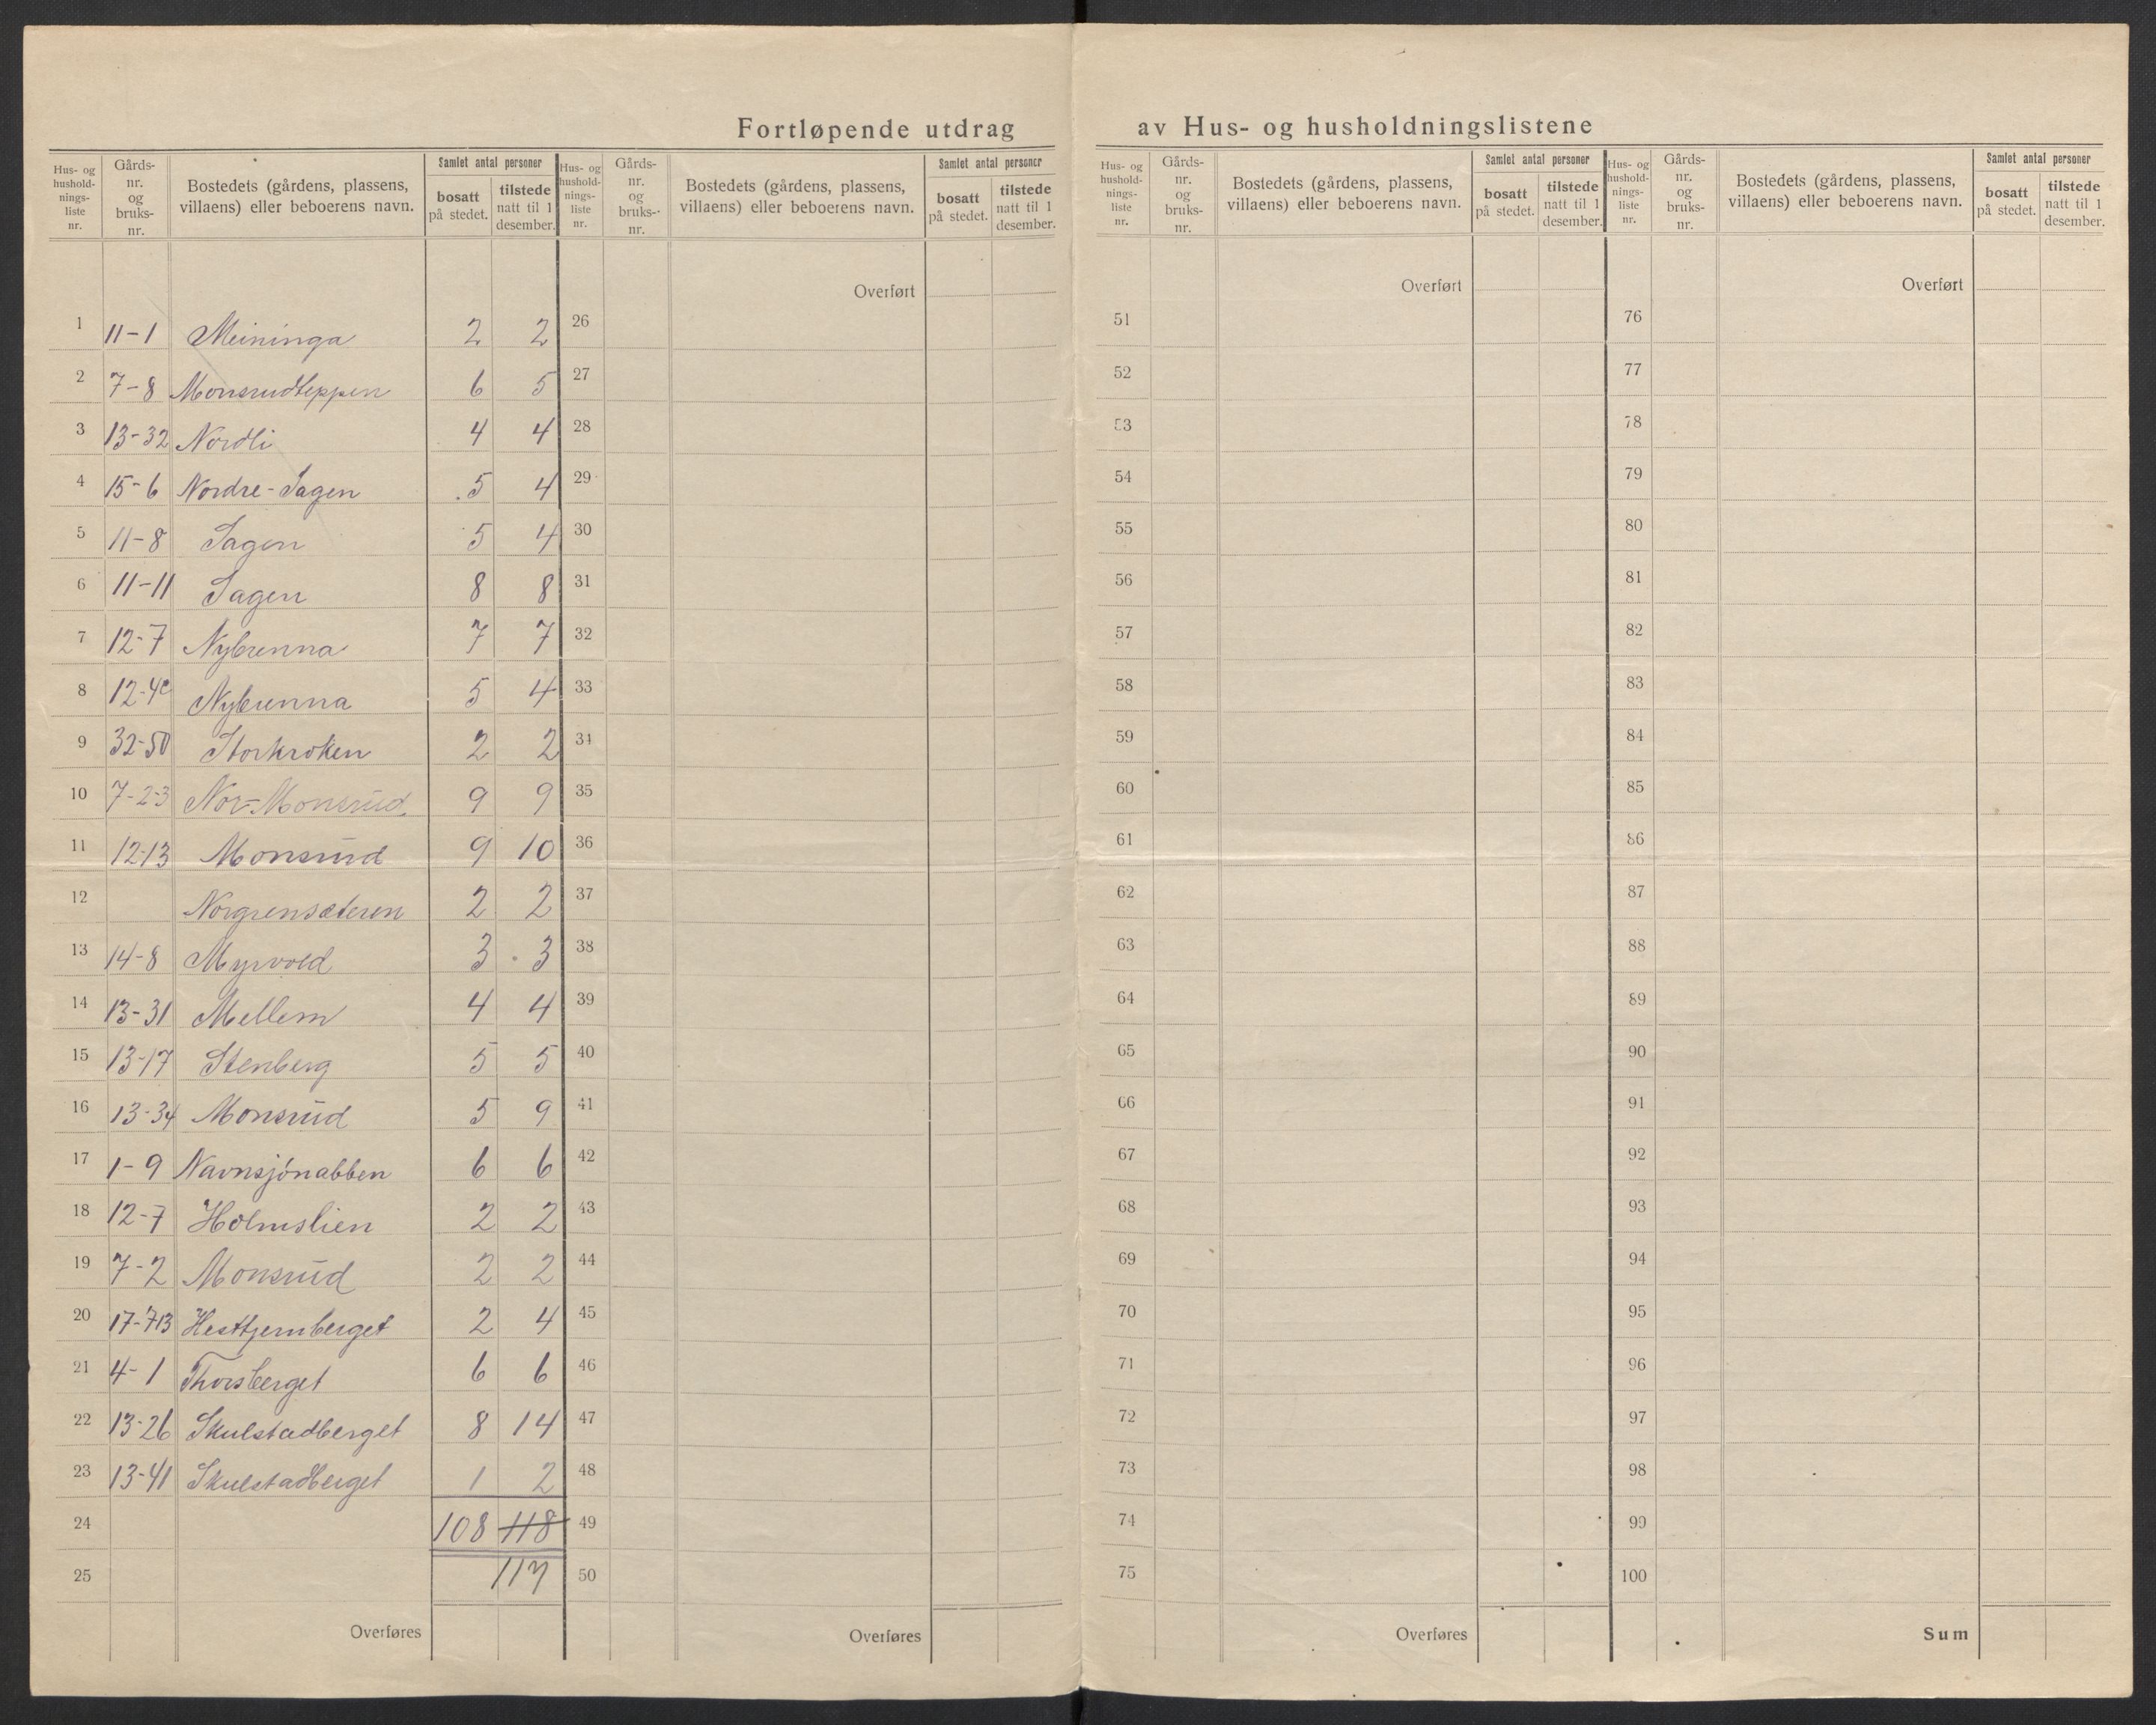 Fortløpende utdrag av Hus- og husholdningslistene
Hus- og hushold- nings- liste nr. | Gårds- nr. og bruks- nr. | Bostedets (gårdens, plassens, villaens) eller beboerens navn. | Samlet antal personer | bosatt på stedet. | tilstede natt til 1 desember.
Hus- og hushold- nings- liste nr. | Gårds- nr. og bruks- nr. | Bostedets (gårdens, plassens, villaens) eller beboerens navn. | Samlet antal personer | bosatt på stedet. | tilstede natt til 1 desember.
Hus- og hushold- nings- liste nr. | Gårds- nr. og bruks- nr. | Bostedets (gårdens, plassens, villaens) eller beboerens navn. | Samlet antal personer | bosatt på stedet. | tilstede natt til 1 desember.
Hus- og hushold- nings- liste nr. | Gårds- nr. og bruks- nr. | Bostedets (gårdens, plassens, villaens) eller beboerens navn. | Samlet antal personer | bosatt på stedet. | tilstede natt til 1 desember.
Overført Overført Overført
1 11-1 Meininga 2 2 26 51 76
2 7-8 Monsrudteppen 6 5 27 52 77
3 13-32 Nordli 4 4 28 53 78
4 15-6 Nordre-Sagen 5 4 29 54 79
5 11-8 Sagen 5 4 30 55 80
6 11-11 Sagen 8 8 31 56 81
7 12-7 Nybrenna 7 7 32 57 82
8 12-4c Nybrenna 5 4 33 58 83
9 32-50 Storkroken 2 2 34 59 84
10 7-2-3 Nor-Monsrud 9 9 35 60 85
11 12-13 Monsrud 9 10 36 61 86
12 Norgrensæteren 2 2 37 62 87
13 14-8 Myrvold 3 3 38 63 88
14 13-31 Mellem 4 4 39 64 89
15 13-17 Stenberg 5 5 40 65 90
16 13-34 Monsrud 5 9 41 66 91
17 1-9 Navnsjönabben 6 6 42 67 92
18 12-7 Holmslien 2 2 43 68 93
19 7-2 Monsrud 2 2 44 69 94
20 17-713 Hesttjernberget 2 4 45 70 95
21 4-1 Thorsberget 6 6 46 71 96
22 13-26 Skulstadberget 8 14 47 72 97
23 13-41 Skulstadberget 1 2 48 73 98
24 108 118 49 74 99
25 117 50 75 100
Overføres Overføres Overføres Sum